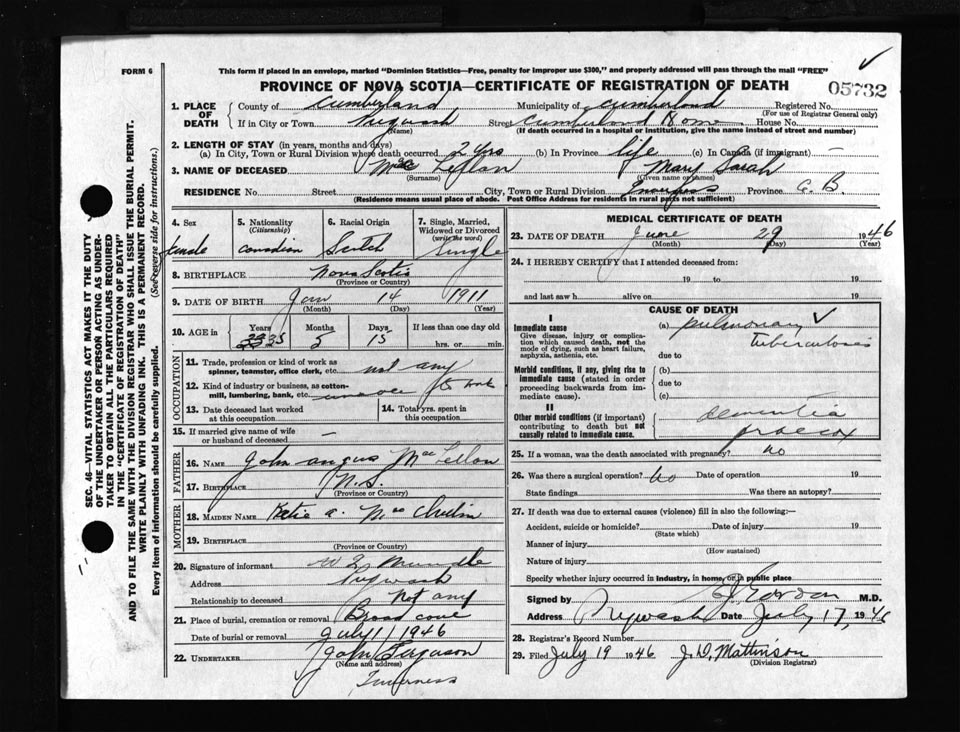 FORM 6
This form if placed in an envelope, marked "Dominion Statistics—Free, penalty for improper use $300," and properly addressed will pass through the mail "FREE"
PROVINCE OF NOVA SCOTIA—CERTIFICATE OF REGISTRATION OF DEATH
05732
1. PLACE OF DEATH
County of Cumberland Municipality of Cumberland Registered No.
(For use of Registrar General only)
If in City or Town Pugwash Street Cumberland Home House No.
(Name) (If death occurred in a hospital or institution, give the name instead of street and number)
2. LENGTH OF STAY (in years, months and days)
(a) In City, Town or Rural Division where death occurred 2 yrs (b) In Province life (c) In Canada (if immigrant) —
3. NAME OF DECEASED Mac Lellan Mary Sarah
(Surname) (Given name or names)
RESIDENCE No. Street City, Town or Rural Division Inverness Province C. B.
(Residence means usual place of abode. Post Office Address for residents in rural parts not sufficient)
SEC. 46—VITAL STATISTICS ACT MAKES IT THE DUTY
OF THE UNDERTAKER OR PERSON ACTING AS UNDER-
TAKER TO OBTAIN ALL THE PARTICULARS REQUIRED
IN THE "CERTIFICATE OF REGISTRATION OF DEATH"
AND TO FILE THE SAME WITH THE DIVISION REGISTRAR WHO SHALL ISSUE THE BURIAL PERMIT.
WRITE PLAINLY WITH UNFADING INK. THIS IS A PERMANENT RECORD.
Every item of information should be carefully supplied. (See reverse side for instructions.)
4. Sex female
5. Nationality (Citizenship) Canadian
6. Racial Origin Scotch
7. Single, Married, Widowed or Divorced (write the word) Single
8. BIRTHPLACE Nova Scotia
(Province or Country)
9. DATE OF BIRTH Jan 14 1911
(Month) (Day) (Year)
10. AGE in Years 35 Months 5 Days 15 If less than one day old
hrs. or min.
OCCUPATION
11. Trade, profession or kind of work as spinner, teamster, office clerk, etc. not any
12. Kind of industry or business, as cotton-mill, lumbering, bank, etc. to work
13. Date deceased last worked at this occupation
14. Total yrs. spent in this occupation
15. If married give name of wife or husband of deceased —
FATHER
16. NAME John Angus MacLellan
17. BIRTHPLACE N.S.
(Province or Country)
MOTHER
18. MAIDEN NAME Katie A. Mac
19. BIRTHPLACE
(Province or Country)
20. Signature of informant Mundle
Address Pugwash
Relationship to deceased not any
21. Place of burial, cremation or removal Broad cove
Date of burial or removal July 1 1946
22. UNDERTAKER John Ferguson
(Name and address)
Inverness
MEDICAL CERTIFICATE OF DEATH
23. DATE OF DEATH June 29 1946
(Month) (Day) (Year)
24. I HEREBY CERTIFY that I attended deceased from:
19 to 19
and last saw h alive on 19
CAUSE OF DEATH
I
Immediate cause
Give disease, injury or complication which caused death, not the mode of dying, such as heart failure, asphyxia, asthenia, etc.
(a) pulmonary
tuberculosis
due to
Morbid conditions, if any, giving rise to immediate cause (stated in order proceeding backwards from immediate cause).
(b)
due to
(c)
II
Other morbid conditions (if important) contributing to death but not causally related to immediate cause.
dementia
praecox
25. If a woman, was the death associated with pregnancy? no
26. Was there a surgical operation? no Date of operation 19
State findings Was there an autopsy?
27. If death was due to external causes (violence) fill in also the following:—
Accident, suicide or homicide? Date of injury 19
(State which)
Manner of injury
(How sustained)
Nature of injury
Specify whether injury occurred in industry, in home, or in public place
Signed by Gordon M.D.
Address Pugwash Date July 17, 1946
28. Registrar's Record Number
29. Filed July 19 1946 J. D. Mattinson
(Division Registrar)